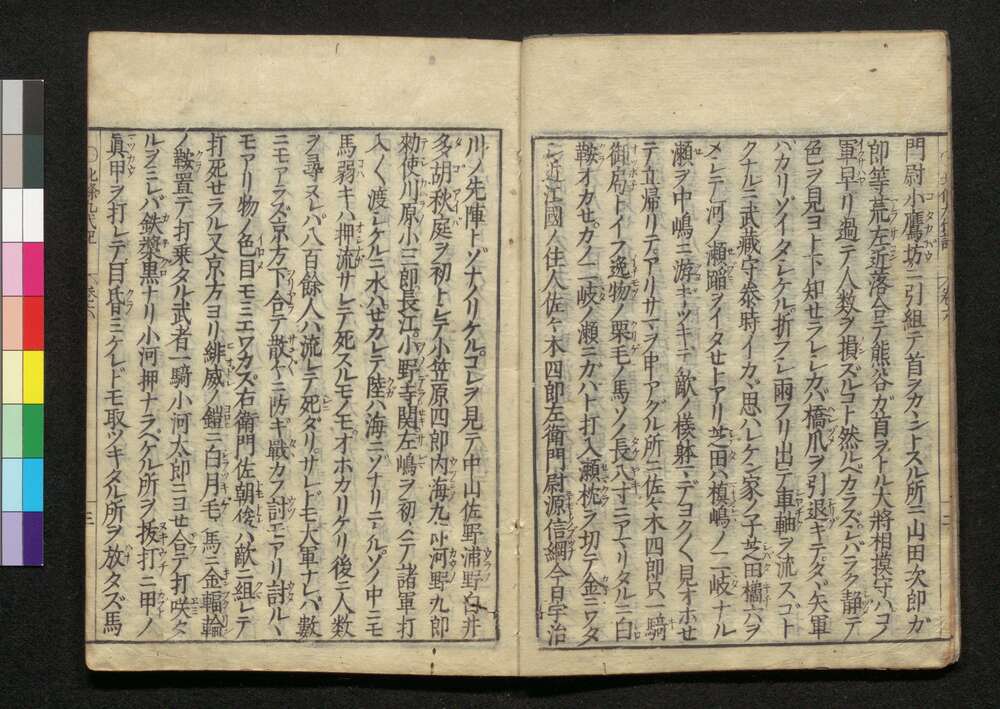 門尉小鷹坊ニ引組テ首ヲカントスル所ニ山田次郎ガ
郎等荒左近落合テ熊谷ガ首ヲトル大將相摸守ハコノ
軍早リ過テ人数ヲ損ズルコト然ルベカラズシバラク静テ
色ヲ見ヨト下知せラレシカバ橋爪ヲ引退キテタヾ矢軍
バカリゾイタシケル折フシ雨フリ出テ車軸ヲ流スゴト
クナルニ武藏守泰時イカヾ思ハレケン家ノ子芝田橘六ヲ
メシテ河ノ瀬蹈ヲイタせトアリ芝田ハ槙嶋ノ二岐ナル
瀬ヲ中嶋ニ游ギツキテ敵ノ様躰ニデヨク〱見オホせ
テ立帰リテアリサマヲ申アグル所ニ佐々木四郎只一騎
御局トイフ逸物ノ栗毛ノ馬ソノ長八寸ニアマリタルニ白
鞍オカせテカノ二岐ノ瀬ニカハト打入瀬枕ヲ切テ金ニワタ
シ近江國ノ住人佐々木四郎左衛門尉源信綱今日宇治
川ノ先陣トゾナノリケルコレヲ見テ中山佐野浦野白井
多胡秋庭ヲ初トシテ小笠原四郎内海九郎河野九郎
勅使川原小三郎長江小野寺関左嶋ヲ初シテ諸軍打
入〱渡シケルニ水ハせカレテ陸ハ海ニゾナリニケルソノ中ニモ
馬弱キハ押流サレテ死スルモノモオホカリケリ後ニ人数
ヲ尋ヌレバ八百餘人ハ流レテ死ダリサレドモ大軍ナレバ數
ニモアラズ京方下合テ散々ニ防ギ戰カフ討モアリ討ルヽ
モアリ物ノ色目モミエワカズ右衛門佐朝俊ハ敵ニ組レテ
打死せラル又京方ヨリ緋威ノ鎧ニ白月毛ノ馬ニ金輻輪
ノ鞍置テ打乗タル武者一騎小河太郎ニヨせ合テ打咲タ
ルヲミレバ鉄漿黒ナリ小河押ナラベケル所ヲ抜打ニ甲ノ
眞甲ヲ打レテ目昏ミケレドモ取ツキタル所ヲ放タズ馬